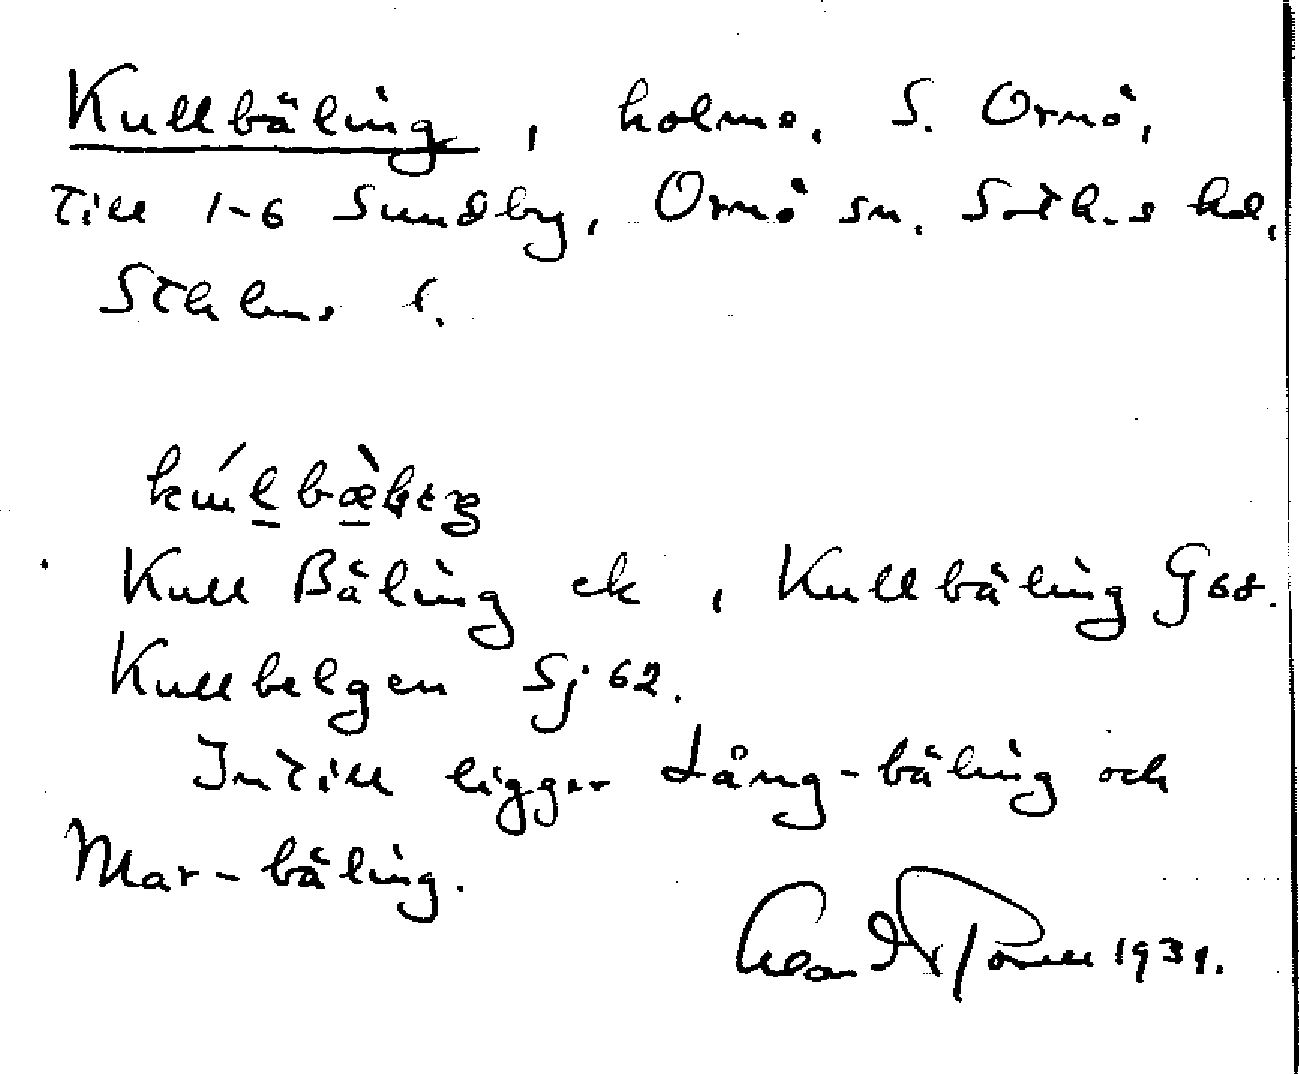 Kullbäling, holme, S. Ornö,
till 1-6 Sundby, Ornö sn. Soth-s hd,
Sthlms l.
Kull Bäling ek, Kullbäling G68.
Kullbelgen Sj 62.
Intill ligger Lång-bäling och
Mar-bäling.
1939.